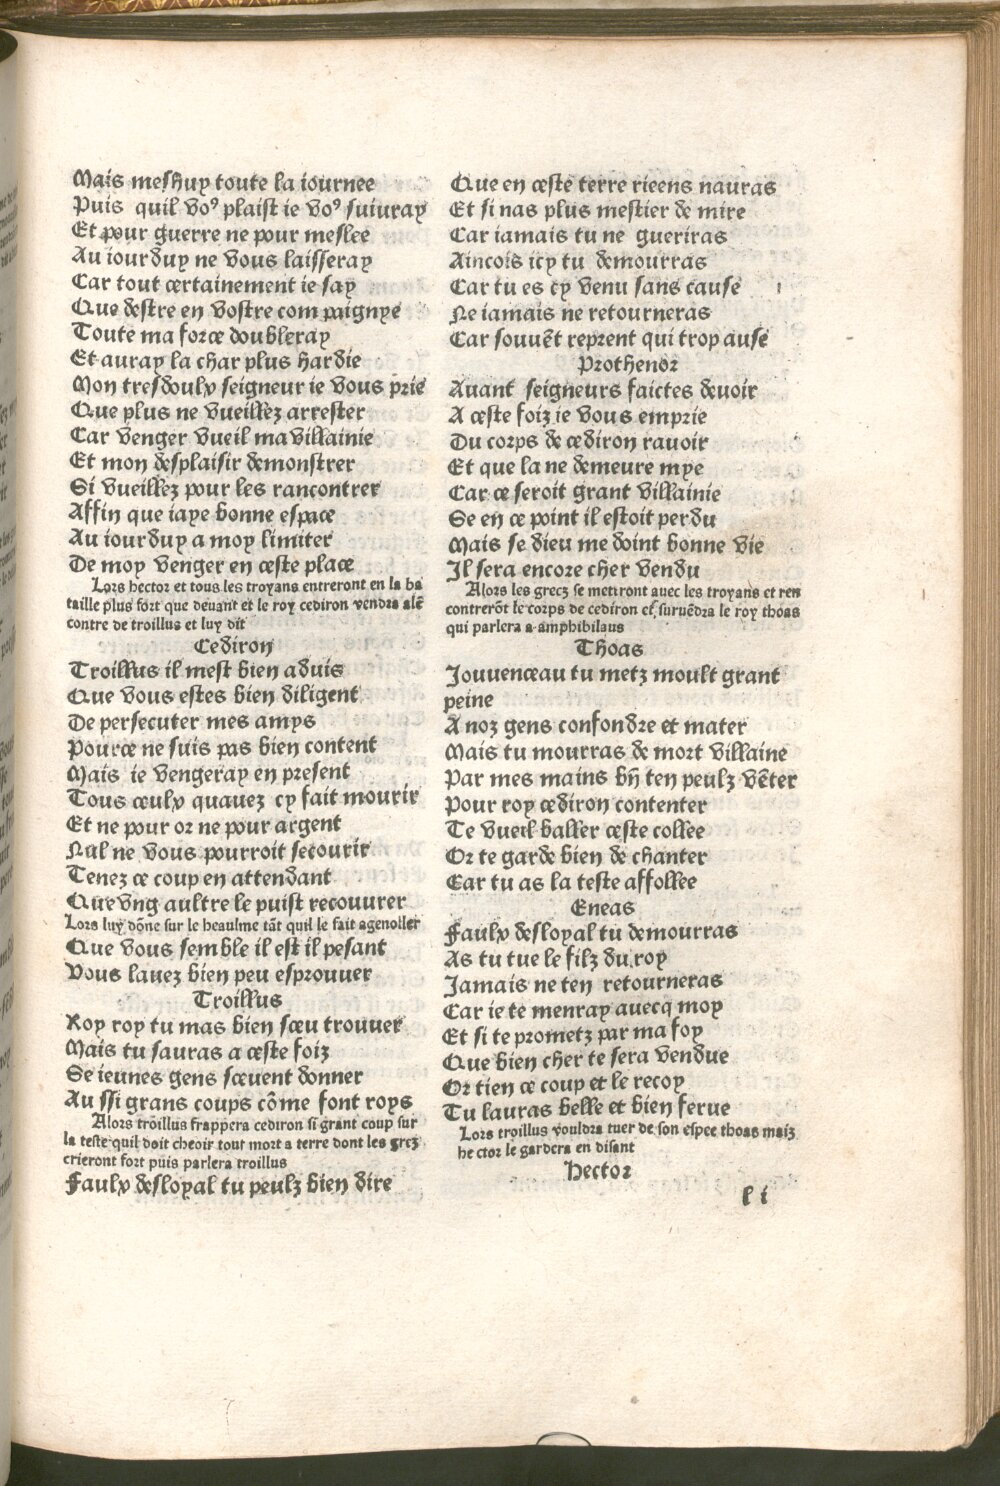 Mais meshuy toute la iournee
Puis quil vo⁹ plaist ie vo⁹ suiuray
Et pour guerre ne pour meslee
Au iourduy ne vous laisseray
Car tout certainement ie say
Que destre en vostre com paignye
Toute ma force doubleray
Et auray la char plus hardie
Mon tresdoulx seigneur ie vous prie
Que plus ne vueillez arrester
Car venger vueil ma villainie
Et mon desplaisir demonstrer
Si vueillez pour les rancontrer
Affin que iaye bonne espace
Au iourduy a moy limiter
De moy venger en ceste place
Lors hector et tous les troyans entreront en la ba
taille plus fort que deuant et le roy cediron vendra alē
contre de troillus et luy dit
Cediron
Troillus il mest bien aduis
Que vous estes bien diligent
De persecuter mes amys
Pource ne suis pas bien content
Mais ie vengeray en present
Tous ceulx quauez cy fait mourir
Et ne pour or ne pour argent
Nul ne vous pourroit secourir
Tenez ce coup en attendant
Que vng aultre le puist recouurer
Lors luy dōne sur le heaulme tāt quil le fait agenoller
Que vous semble il est il pesant
Vous lauez bien peu esprouuer
Troillus
Roy roy tu mas bien sceu trouuer
Mais tu sauras a ceste foiz
Se ieunes gens sceuent donner
Au ssi grans coups cōme font roys
Alors troillus frappera cediron si grant coup sur
la teste quil doit cheoir tout mort a terre dont les grez
crieront fort puis parlera troillus
Faulx desloyal tu peulz bien dire
Que en ceste terre rieens nauras
Et si nas plus mestier de mire
Car iamais tu ne gueriras
Aincois icy tu demourras
Car tu es cy venu sans cause
Ne iamais ne retourneras
Car souuēt reprent qui trop ause
Prothenor
Auant seigneurs faictes deuoir
A ceste foiz ie vous emprie
Du corps de cediron rauoir
Et que la ne demeure mye
Car ce seroit grant villainie
Se en ce point il estoit perdu
Mais se dieu me doint bonne vie
Il sera encore cher vendu
Alors les grecz se metront auec les troyans et ren
contrerōt le corps de cediron et suruēdra le roy thoas
qui parlera a amphibilaus
Thoas
Jouuenceau tu metz moult grant
peine
A noz gens confondre et mater
Mais tu mourras de mort villaine
Par mes mains bñ ten peulz vēter
Pour roy cediron contenter
Te vueil baller ceste collee
Or te garde bien de chanter
Car tu as la teste affollee
Eneas
Faulx desloyal tu demourras
As tu tue le filz du roy
Jamais ne ten retourneras
Car ie te menray auecq moy
Et si te prometz par ma foy
Que bien cher te sera vendue
Or tien ce coup et le recoy
Tu lauras belle et bien ferue
Lors troillus vouldra tuer de son espee thoas maiz
he ctor le gardera en disant
Hector
l i